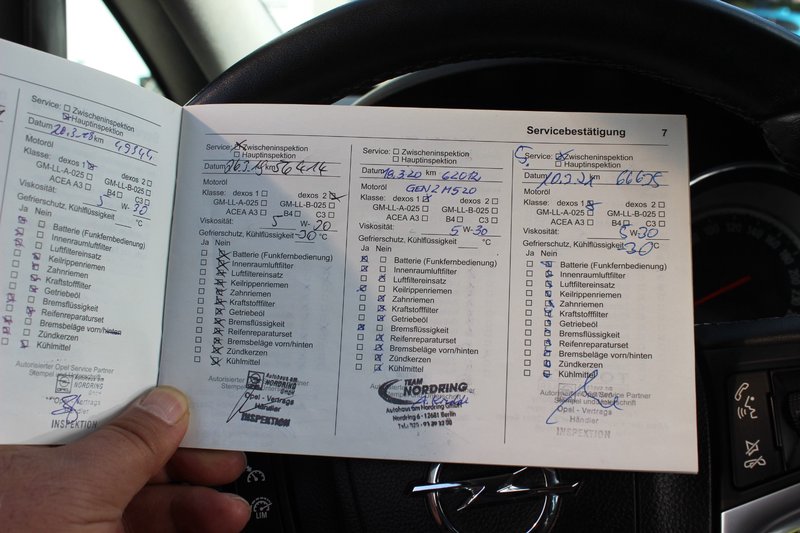 Servicebestätigung 7
Service: Zwischeninspektion
Hauptinspektion
Datum 20.3.18 km 49344
Motoröl
Klasse: dexos 1 dexos 2
GM-LL-A-025 GM-LL-B-025
ACEA A3 B4 C3
Viskosität: 5 W-30
Gefrierschutz, Kühlflüssigkeit: °C
Ja Nein
Batterie (Funkfernbedienung)
Innenraumluftfilter
Luftfiltereinsatz
Keilrippenriemen
Zahnriemen
Kraftstofffilter
Getriebeöl
Bremsflüssigkeit
Reifenreparaturset
Bremsbeläge vorn/hinten
Zündkerzen
Kühlmittel
Autorisierter Opel Service Partner
Stempel und
Vertrags
Händler
INSPEKTION
Service: Zwischeninspektion
Hauptinspektion
Datum 26.3.19 km 56414
Motoröl
Klasse: dexos 1 dexos 2
GM-LL-A-025 GM-LL-B-025
ACEA A3 B4 C3
Viskosität: 5 W-20
Gefrierschutz, Kühlflüssigkeit: -30 °C
Ja Nein
Batterie (Funkfernbedienung)
Innenraumluftfilter
Luftfiltereinsatz
Keilrippenriemen
Zahnriemen
Kraftstofffilter
Getriebeöl
Bremsflüssigkeit
Reifenreparaturset
Bremsbeläge vorn/hinten
Zündkerzen
Kühlmittel
Autorisierter
Autohaus am
NORDRING
Opel - Vertrags
Händler
INSPEKTION
Service: Zwischeninspektion
Hauptinspektion
Datum 18.3.20 km 62012
Motoröl GEN2 M520
Klasse: dexos 1 dexos 2
GM-LL-A-025 GM-LL-B-025
ACEA A3 B4 C3
Viskosität: 5 W-30
Gefrierschutz, Kühlflüssigkeit: °C
Ja Nein
Batterie (Funkfernbedienung)
Innenraumluftfilter
Luftfiltereinsatz
Keilrippenriemen
Zahnriemen
Kraftstofffilter
Getriebeöl
Bremsflüssigkeit
Reifenreparaturset
Bremsbeläge vorn/hinten
Zündkerzen
Kühlmittel
TEAM
NORDRING
Autohaus am Nordring
Nordring 6 - 12681 Berlin
Service: Zwischeninspektion
Hauptinspektion
Datum km 66675
Motoröl
Klasse: dexos 1 dexos 2
GM-LL-A-025 GM-LL-B-025
ACEA A3 B4 C3
Viskosität: 5 W-30
Gefrierschutz, Kühlflüssigkeit: -30 °C
Ja Nein
Batterie (Funkfernbedienung)
Innenraumluftfilter
Luftfiltereinsatz
Keilrippenriemen
Zahnriemen
Kraftstofffilter
Getriebeöl
Bremsflüssigkeit
Reifenreparaturset
Bremsbeläge vorn/hinten
Zündkerzen
Kühlmittel
Service Partner
Opel - Vertrags
Händler
INSPEKTION
LIM